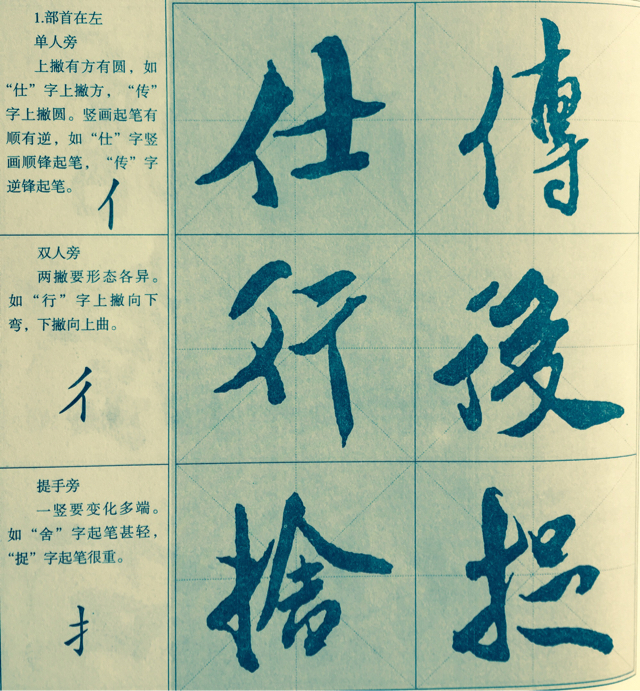 1.部首在左
单人旁
上撇有方有圆，如
“仕”字上撇方，“传”
字上撇圆。竖画起笔有
顺有逆，如“仕”字竖
画顺锋起笔，“传”字
逆锋起笔。
亻
仕 傳
双人旁
两撇要形态各异。
如“行”字上撇向下
弯，下撇向上曲。
彳
行 後
提手旁
一竖要变化多端。
如“舍”字起笔甚轻，
“捉”字起笔很重。
扌
捨 捉